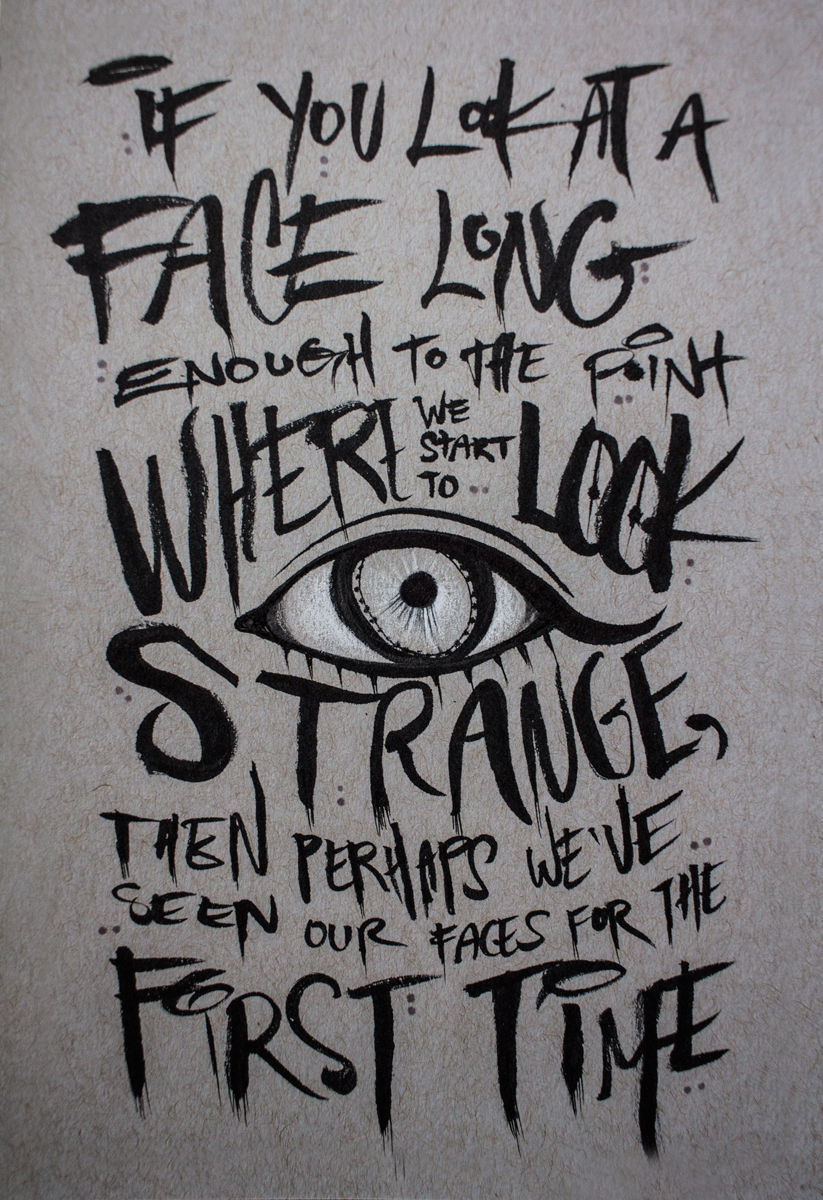 IF YOU LOOK AT A
FACE LONG
ENOUGH TO THE POINT
WHERE WE START TO LOOK
STRANGE,
THEN PERHAPS WE'VE
SEEN OUR FACES FOR THE
FIRST TIME